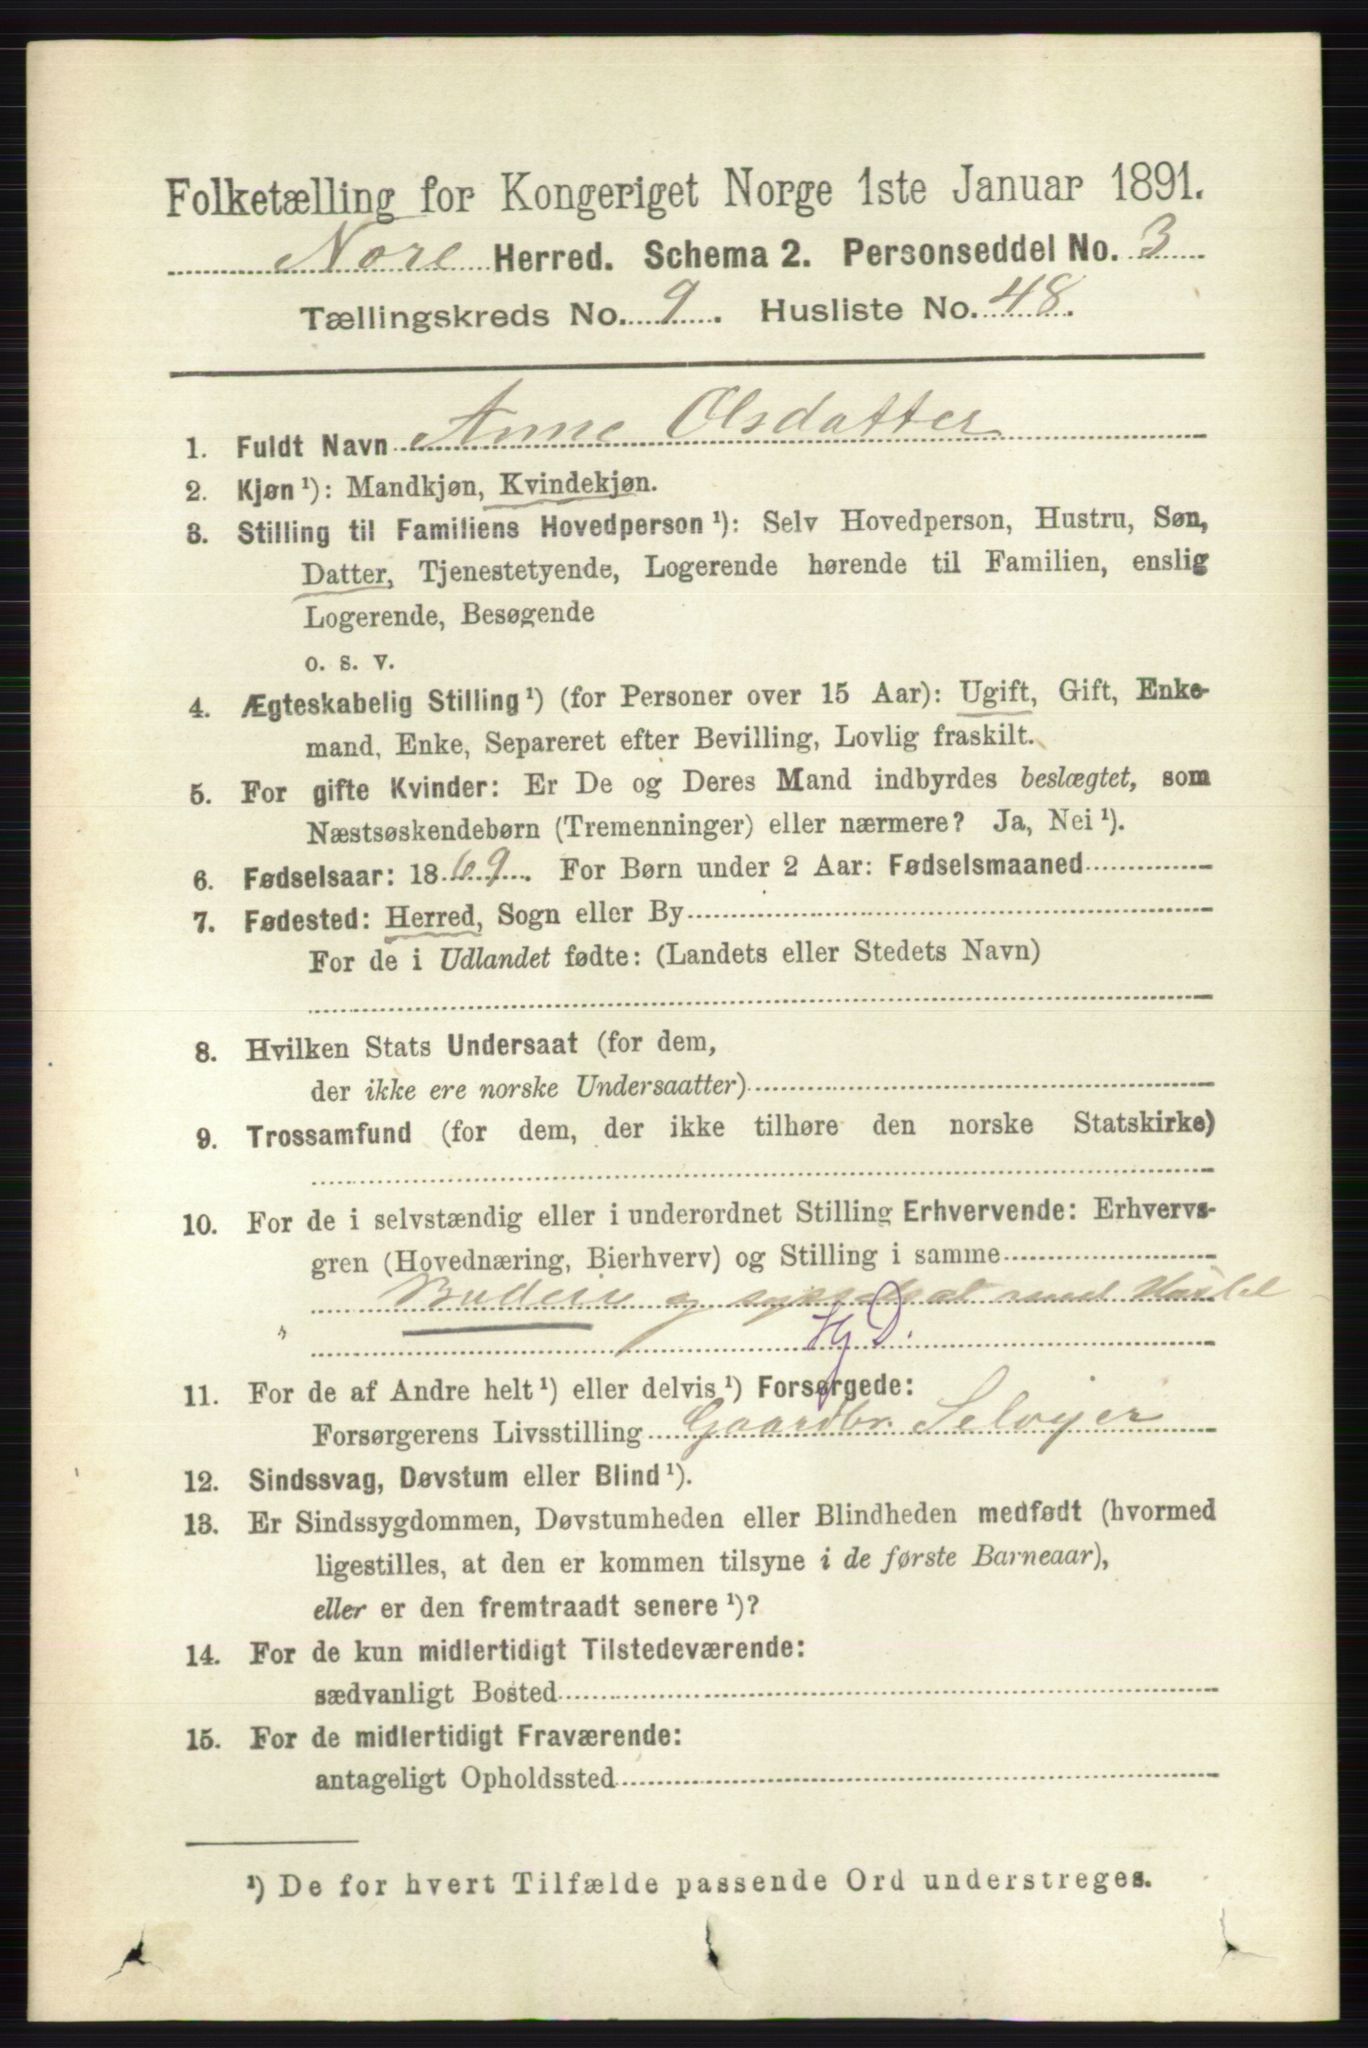 Folketælling for Kongeriget Norge 1ste Januar 1891.
Nore Herred. Schema 2. Personseddel No. 3
Tællingskreds No. 9. Husliste No. 48.
1. Fuldt Navn Anne Olsdatter
2. Kjøn¹): Mandkjøn, Kvindekjøn.
3. Stilling til Familiens Hovedperson¹): Selv Hovedperson, Hustru, Søn,
Datter, Tjenestetyende, Logerende hørende til Familien, enslig
Logerende, Besøgende
o. s. v.
4. Ægteskabelig Stilling¹) (for Personer over 15 Aar): Ugift, Gift, Enke-
mand, Enke, Separeret efter Bevilling, Lovlig fraskilt.
5. For gifte Kvinder: Er De og Deres Mand indbyrdes beslægtet, som
Næstsøskendebørn (Tremenninger) eller nærmere? Ja, Nei¹).
6. Fødselsaar: 1869. For Børn under 2 Aar: Fødselsmaaned
7. Fødested: Herred, Sogn eller By
For de i Udlandet fødte: (Landets eller Stedets Navn)
8. Hvilken Stats Undersaat (for dem,
der ikke ere norske Undersaatter)
9. Trossamfund (for dem, der ikke tilhøre den norske Statskirke)
10. For de i selvstændig eller i underordnet Stilling Erhvervende: Erhvervs-
gren (Hovednæring, Bierhverv) og Stilling i samme
Budeie og sysselsat med
Hj D.
11. For de af Andre helt¹) eller delvis¹) Forsørgede:
Forsørgerens Livsstilling Gaardbr. Selveier
12. Sindssvag, Døvstum eller Blind¹).
13. Er Sindssygdommen, Døvstumheden eller Blindheden medfødt (hvormed
ligestilles, at den er kommen tilsyne i de første Barneaar),
eller er den fremtraadt senere¹)?
14. For de kun midlertidigt Tilstedeværende:
sædvanligt Bosted
15. For de midlertidigt Fraværende:
antageligt Opholdssted
¹) De for hvert Tilfælde passende Ord understreges.